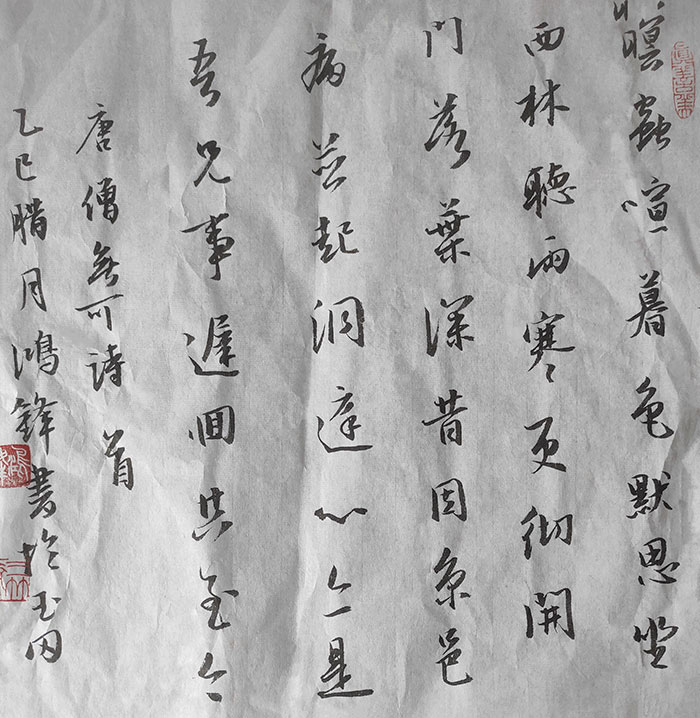 暝蟲喧暮色默思坐
西林聽雨寒更彻開
門落葉深昔因京邑
病並起洞庭心亦是
吾兄事遲迴共至今
唐僧無可詩首
乙巳腊月鴻鋒書於玉田